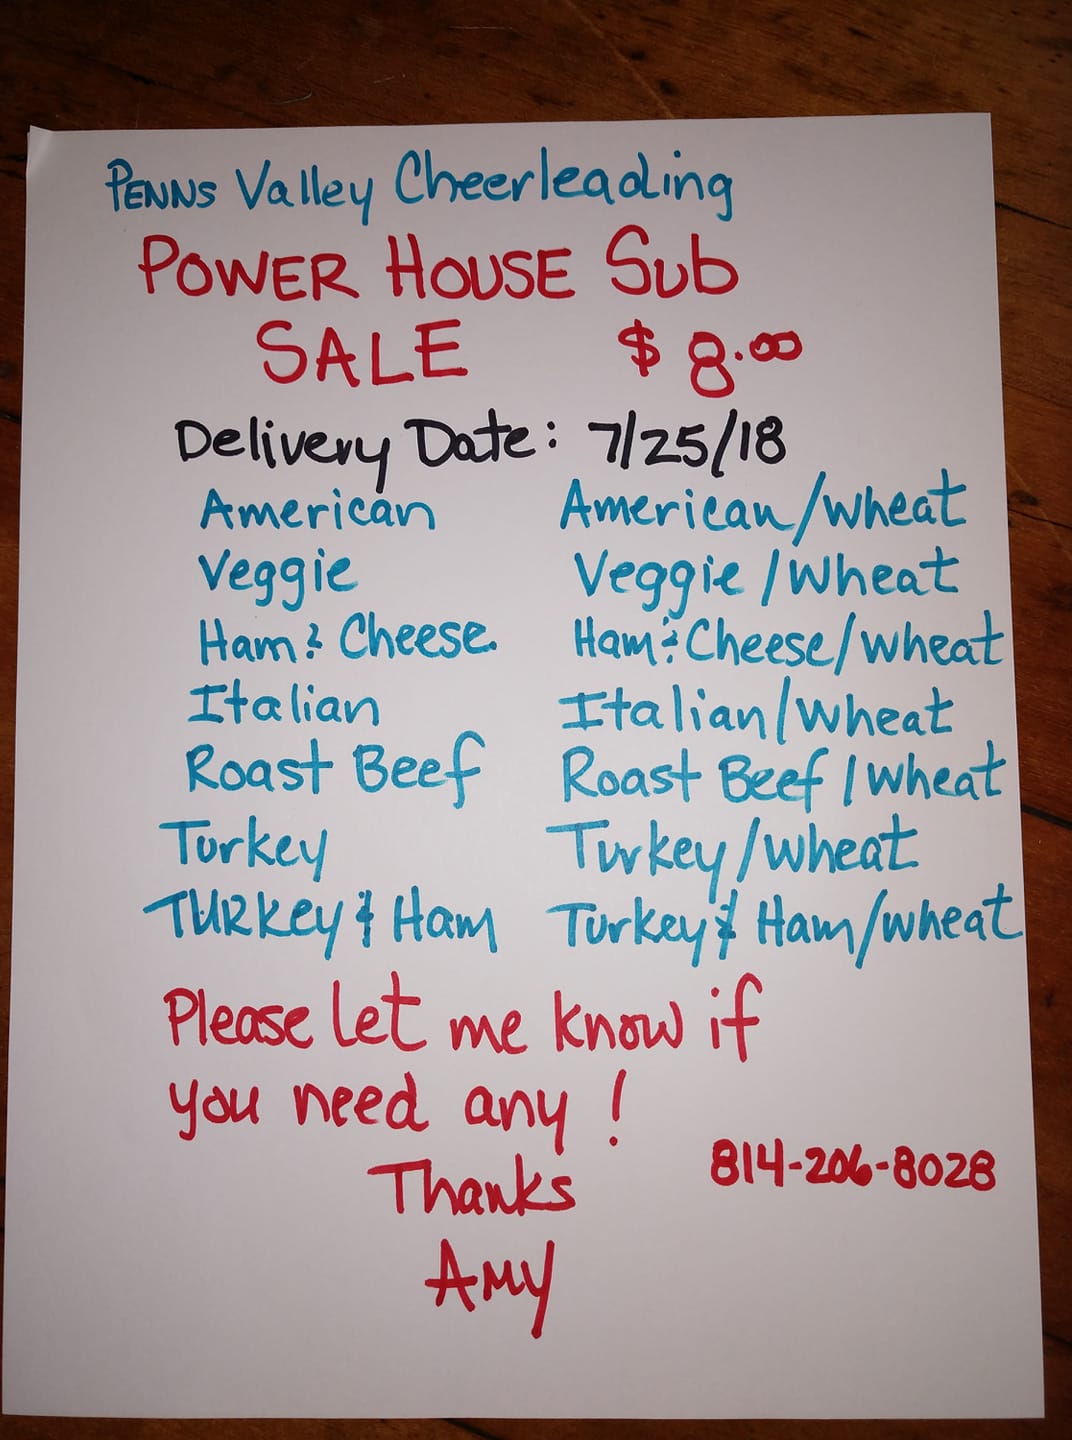 PENNS Valley Cheerleading
POWER HOUSE Sub
SALE $8.00
Delivery Date: 7/25/18
American American/wheat
Veggie Veggie/wheat
Ham & Cheese. Ham & Cheese/wheat
Italian Italian/wheat
Roast Beef Roast Beef/wheat
Turkey Turkey/wheat
TURKEY & Ham Turkey & Ham/wheat
Please let me know if
you need any!
814-206-8028
Thanks
AMY